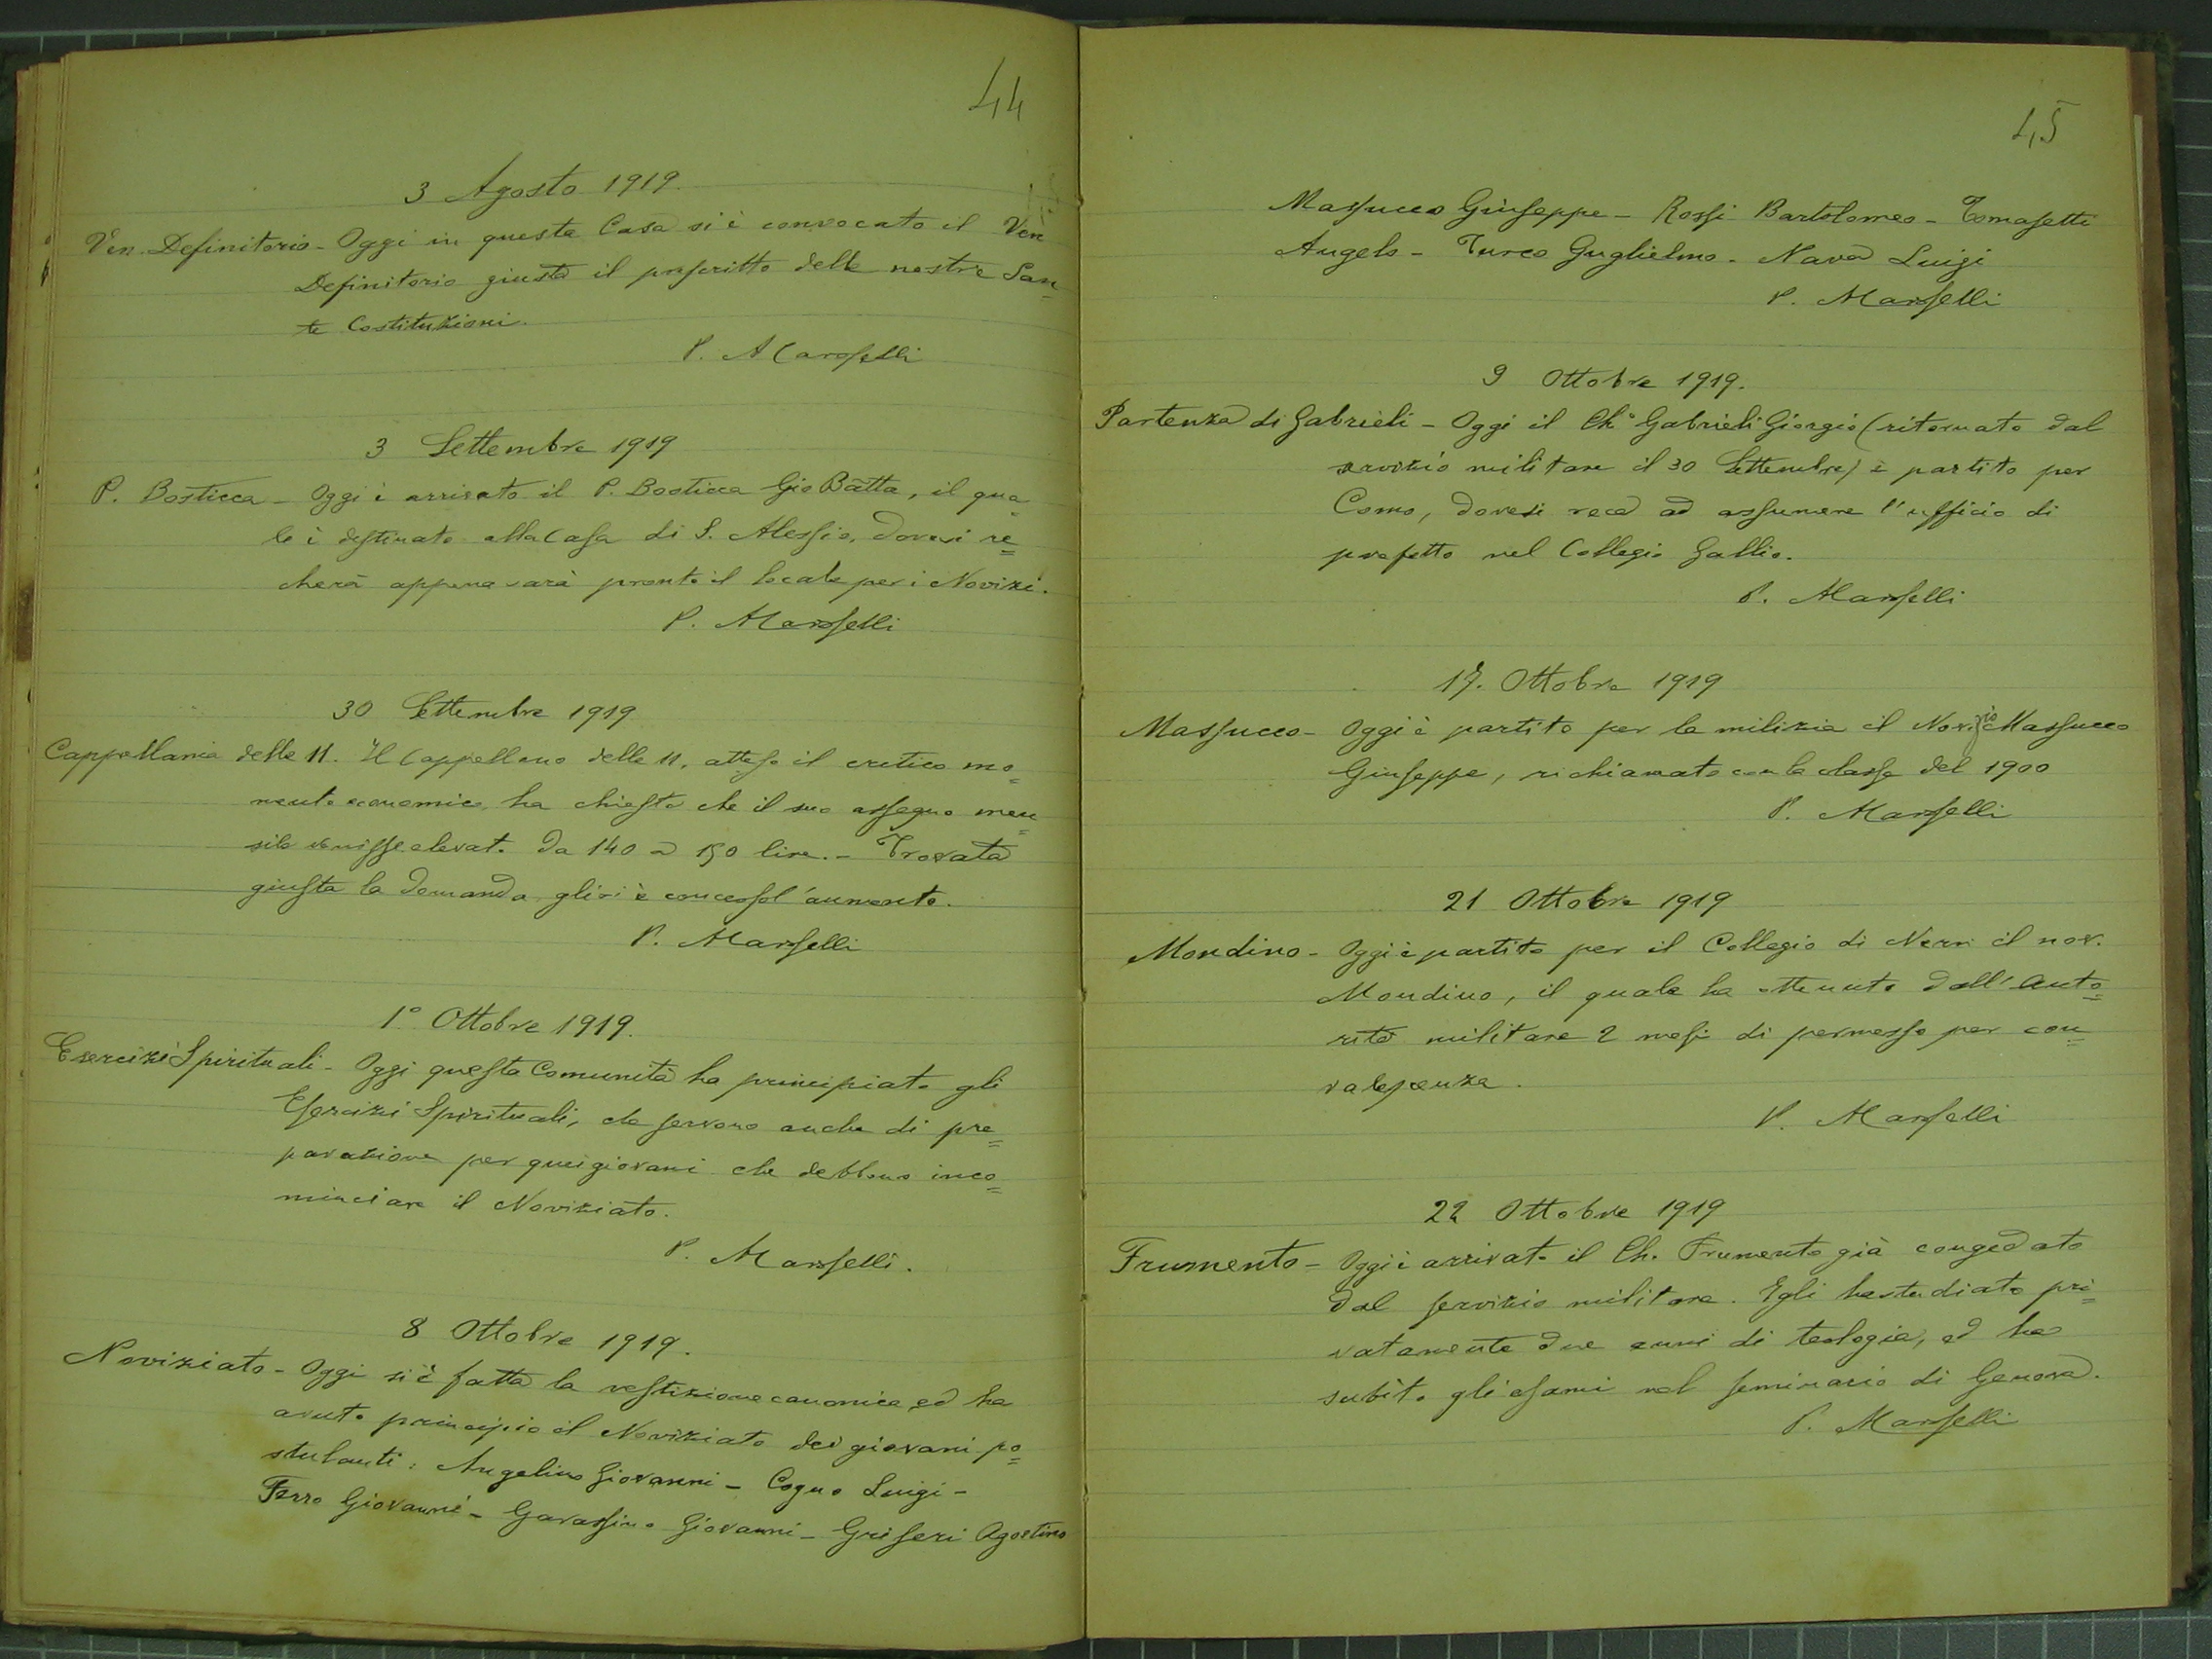 44
3 Agosto 1919.
Ven. Definitorio - Oggi in questa Casa si è convocato il Ven
Definitorio giusta il prescritto delle nostre San-
te Costituzioni.
P. Marosselli
3 Settembre 1919
P. Bosticca - Oggi è arrivato il P. Bosticca Gio Batta, il qua-
le è destinato alla Casa di S. Alessio, dove si re=
cherà appena sarà pronto il locale per i Novizi.
P. Marosselli
30 Settembre 1919
Cappellania delle 11. Il Cappellano delle 11, atteso il critico mo=
mento economico, ha chiesto che il suo assegno men=
sile venisse elevato da 140 a 150 lire. - Trovata
giusta la domanda gli si è concesso l'aumento.
P. Marosselli
1° Ottobre 1919.
Esercizi Spirituali - Oggi questa Comunità ha principiato gli
Esercizi Spirituali, che servono anche di pre=
parazione per quei giovani che debbono inco=
minciare il Noviziato.
P. Marosselli.
8 Ottobre 1919.
Noviziato - Oggi si è fatta la vestizione canonica, ed ha
avuto principio il Noviziato dei giovani po=
stulanti: Angelino Giovanni - Cogno Luigi -
Ferro Giovanni - Gavassino Giovanni - Griseri Agostino
45
Massucco Giuseppe - Rossi Bartolomeo - Tomasetti
Angelo - Turco Guglielmo - Nava Luigi
P. Marosselli
9 Ottobre 1919.
Partenza di Gabrieli - Oggi il Ch° Gabrieli Giorgio (ritornato dal
servizio militare il 30 Settembre) è partito per
Como, dove si reca ad assumere l'ufficio di
prefetto nel Collegio Gallio.
P. Marosselli
17. Ottobre 1919
Massucco - Oggi è partito per la milizia il Novizio Massucco
Giuseppe, richiamato con la classe del 1900
P. Marosselli
21 Ottobre 1919
Mondino - Oggi è partito per il Collegio di Nervi il nov.
Mondino, il quale ha ottenuto dall'Auto=
rità militare 2 mesi di permesso per con=
valescenza.
P. Marosselli
22 Ottobre 1919
Frumento - Oggi è arrivato il Ch. Frumento già congedato
dal servizio militare. Egli ha studiato pri=
vatamente due anni di teologia, ed ha
subìto gli esami nel seminario di Genova.
P. Marosselli